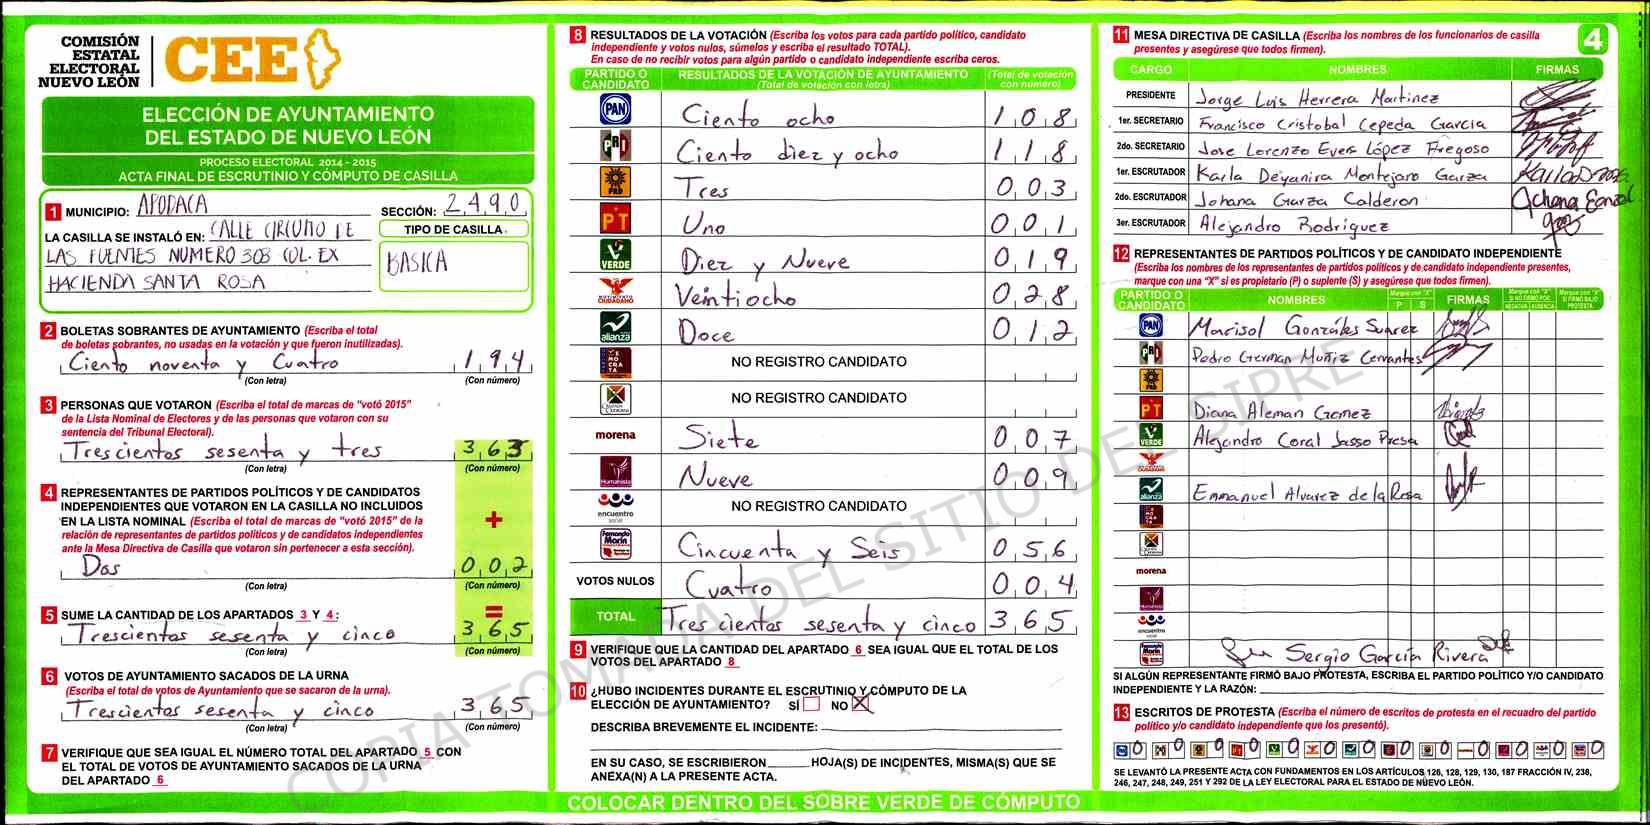 COMISIÓN
ESTATAL
ELECTORAL
NUEVO LEÓN
CEE
ELECCIÓN DE AYUNTAMIENTO
DEL ESTADO DE NUEVO LEÓN
PROCESO ELECTORAL 2014 - 2015
ACTA FINAL DE ESCRUTINIO Y CÓMPUTO DE CASILLA
1 MUNICIPIO: APODACA SECCIÓN: 2490
LA CASILLA SE INSTALÓ EN: CALLE CIRCUITO DE
LAS FUENTES NUMERO 308 COL. EX
HACIENDA SANTA ROSA
TIPO DE CASILLA.
BASICA
2 BOLETAS SOBRANTES DE AYUNTAMIENTO (Escriba el total
de boletas sobrantes, no usadas en la votación y que fueron inutilizadas).
Ciento noventa y Cuatro 194
(Con letra) (Con número)
3 PERSONAS QUE VOTARON (Escriba el total de marcas de “votó 2015”
de la Lista Nominal de Electores y de las personas que votaron con su
sentencia del Tribunal Electoral).
Trescientos sesenta y tres 363
(Con letra) (Con número)
4 REPRESENTANTES DE PARTIDOS POLÍTICOS Y DE CANDIDATOS
INDEPENDIENTES QUE VOTARON EN LA CASILLA NO INCLUIDOS
EN LA LISTA NOMINAL (Escriba el total de marcas de “votó 2015” de la
relación de representantes de partidos políticos y de candidatos independientes
ante la Mesa Directiva de Casilla que votaron sin pertenecer a esta sección).
+
Dos 002
(Con letra) (Con número)
=
5 SUME LA CANTIDAD DE LOS APARTADOS 3 Y 4:
Trescientos sesenta y cinco 365
(Con letra) (Con número)
6 VOTOS DE AYUNTAMIENTO SACADOS DE LA URNA
(Escriba el total de votos de Ayuntamiento que se sacaron de la urna).
Trescientos sesenta y cinco 365
(Con letra) (Con número)
7 VERIFIQUE QUE SEA IGUAL EL NÚMERO TOTAL DEL APARTADO 5 CON
EL TOTAL DE VOTOS DE AYUNTAMIENTO SACADOS DE LA URNA
DEL APARTADO 6
8 RESULTADOS DE LA VOTACIÓN (Escriba los votos para cada partido político, candidato
independiente y votos nulos, súmelos y escriba el resultado TOTAL).
En caso de no recibir votos para algún partido o candidato independiente escriba ceros.
PARTIDO O CANDIDATO RESULTADOS DE LA VOTACIÓN DE AYUNTAMIENTO (Total de votación con letra) (Total de votación con número)
PAN Ciento ocho 108
PRI Ciento diez y ocho 118
PRD Tres 003
PT Uno 001
VERDE Diez y Nueve 019
MOVIMIENTO CIUDADANO Veintiocho 028
alianza Doce 012
NO REGISTRO CANDIDATO
NO REGISTRO CANDIDATO
morena Siete 007
Humanista Nueve 009
encuentro social NO REGISTRO CANDIDATO
Fernando Marín Cincuenta y Seis 056
VOTOS NULOS Cuatro 004
TOTAL Tres cientos sesenta y cinco 365
9 VERIFIQUE QUE LA CANTIDAD DEL APARTADO 6 SEA IGUAL QUE EL TOTAL DE LOS
VOTOS DEL APARTADO 8
10 ¿HUBO INCIDENTES DURANTE EL ESCRUTINIO Y CÓMPUTO DE LA
ELECCIÓN DE AYUNTAMIENTO? SÍ NO X
DESCRIBA BREVEMENTE EL INCIDENTE:
EN SU CASO, SE ESCRIBIERON HOJA(S) DE INCIDENTES, MISMA(S) QUE SE
ANEXA(N) A LA PRESENTE ACTA.
COLOCAR DENTRO DEL SOBRE VERDE DE CÓMPUTO
11 MESA DIRECTIVA DE CASILLA (Escriba los nombres de los funcionarios de casilla
presentes y asegúrese que todos firmen).
4
CARGO NOMBRES FIRMAS
PRESIDENTE Jorge Luis Herrera Martinez
1er. SECRETARIO Francisco Cristobal Cepeda Garcia
2do. SECRETARIO Jose Lorenzo Ever López Fregoso
1er. ESCRUTADOR Karla Deyanira Montejaro Garza
2do. ESCRUTADOR Johana Garza Calderon
3er. ESCRUTADOR Alejandro Rodriguez
12 REPRESENTANTES DE PARTIDOS POLÍTICOS Y DE CANDIDATO INDEPENDIENTE
(Escriba los nombres de los representantes de partidos políticos y de candidato independiente presentes,
marque con una “X” si es propietario (P) o suplente (S) y asegúrese que todos firmen).
PARTIDO O CANDIDATO NOMBRES Marque con "X" P S FIRMAS Marque con "X" SI NO FIRMÓ POR: NEGATIVA AUSENCIA Marque con "X" SI FIRMÓ BAJO PROTESTA.
PAN Marisol Gonzáles Suarez
PRI Pedro German Muñiz Cervantes
PRD
PT Diana Aleman Gomez
VERDE Alejandro Coral Jasso Presa
CIUDADANO
alianza Emmanuel Alvarez de la Rosa
morena
Humanista
encuentro social
Sergio García Rivera
SI ALGÚN REPRESENTANTE FIRMÓ BAJO PROTESTA, ESCRIBA EL PARTIDO POLÍTICO Y/O CANDIDATO
INDEPENDIENTE Y LA RAZÓN:
13 ESCRITOS DE PROTESTA (Escriba el número de escritos de protesta en el recuadro del partido
político y/o candidato independiente que los presentó).
0 0 0 0 0 0 0 0 0 0 0 0 0
SE LEVANTÓ LA PRESENTE ACTA CON FUNDAMENTOS EN LOS ARTÍCULOS 126, 128, 129, 130, 187 FRACCIÓN IV, 238,
246, 247, 248, 249, 251 Y 292 DE LA LEY ELECTORAL PARA EL ESTADO DE NUEVO LEÓN.
COPIA TOMADA DEL SITIO DEL SIPRE